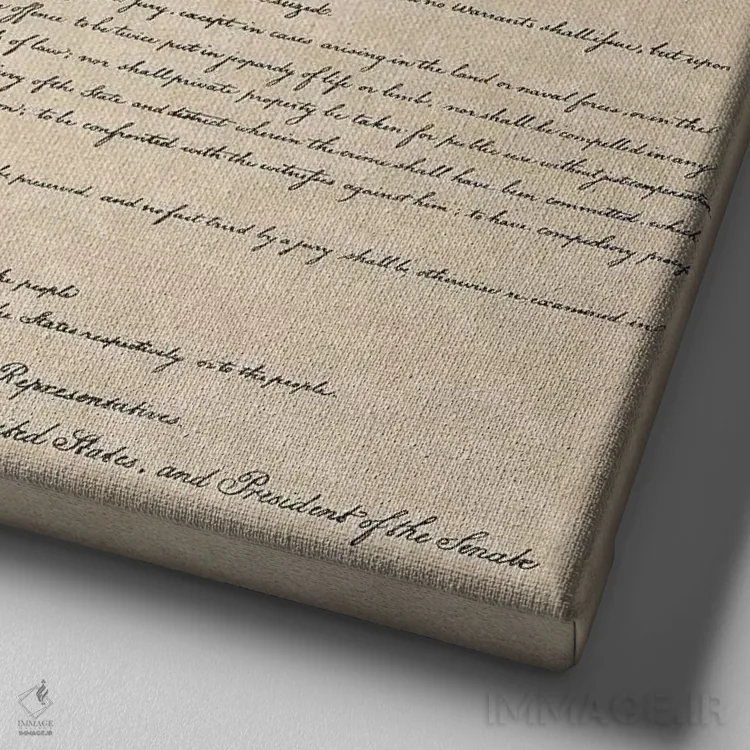 seized.
no Warrants shall issue, but upon
jury, except in cases arising in the land or naval forces, or in the
offence to be twice put in jeopardy of life or limb, nor shall be compelled in any
of law; nor shall private property be taken for public use without just compensation
of the State and district wherein the crime shall have been committed, which
to be confronted with the witnesses against him; to have compulsory
be preserved, and no fact tried by a jury shall be otherwise re-examined in
people
States respectively, or to the people.
Representatives
States, and President of the Senate
IMMAGE
IMMAGE.IR
IMMAGE.IR